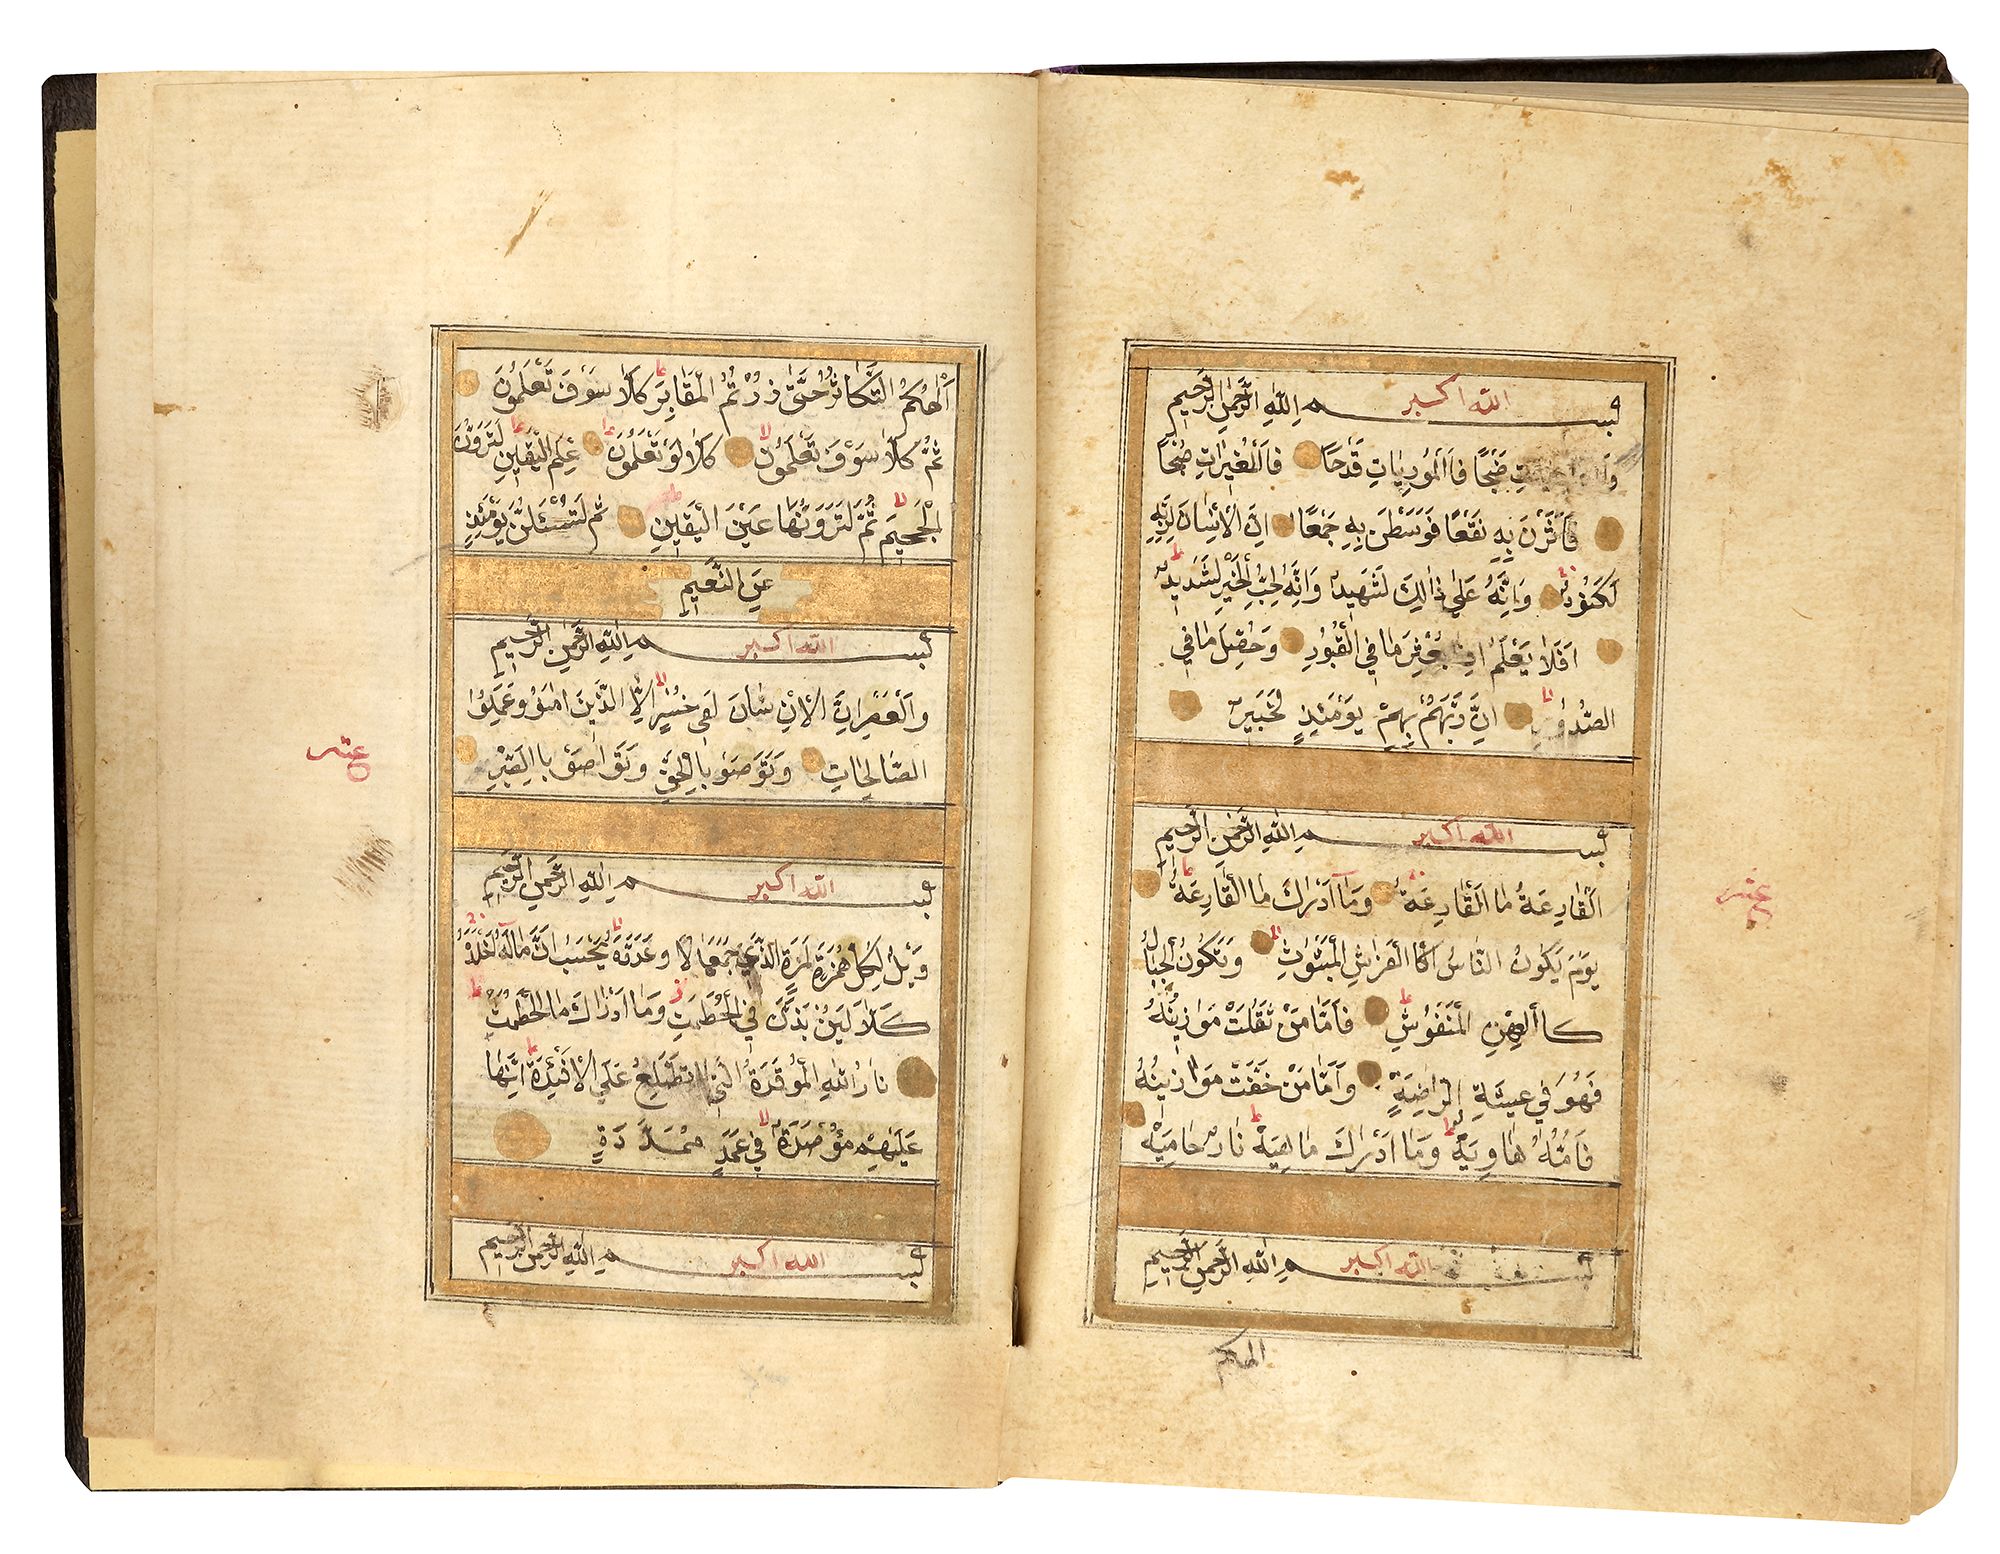 بسم الله الرحمن الرحيم
الله اكبر
ضَبْحًا فَاَلْمُورِيَاتِ قَدْحًا فَاَلْمُغِيرَاتِ صُبْحًا
فَاَثَرْنَ بِهِ نَقْعًا فَوَسَطْنَ بِهِ جَمْعًا اِنَّ الْاِنْسَانَ لِرَبِّهِ
لَكَنُودٌ وَاِنَّهُ عَلَى ذَالِكَ لَشَهِيدٌ وَاِنَّهُ لِحُبِّ الْخَيْرِ لَشَدِيدٌ
اَفَلَا يَعْلَمُ اِذَا بُعْثِرَ مَا فِي الْقُبُورِ وَحُصِّلَ مَا فِي
الصُّدُورِ اِنَّ رَبَّهُمْ بِهِمْ يَوْمَئِذٍ لَخَبِيرٌ
بسم الله الرحمن الرحيم
الله اكبر
اَلْقَارِعَةُ مَا الْقَارِعَةُ وَمَا اَدْرَاكَ مَا الْقَارِعَةُ
عشر
يَوْمَ يَكُونُ النَّاسُ كَاالْفَرَاشِ الْمَبْثُوثِ وَتَكُونُ الْجِبَالُ
كَاالْعِهْنِ الْمَنْفُوشِ فَاَمَّا مَنْ ثَقُلَتْ مَوَازِينُهُ
فَهُوَ فِي عِيشَةِ الرَاضِيَةٍ وَاَمَّا مَنْ خَفَّتْ مَوَازِينُهُ
فَاُمُّهُ هَاوِيَةٌ وَمَا اَدْرَاكَ مَا هِيَهْ نَارٌ حَامِيَةٌ
بسم الله الرحمن الرحيم
الله اكبر
الهكم
اَلْهَاكُمُ التَّكَاثُرُ حَتَّى زُرْتُمُ الْمَقَابِرَ كَلَّا سَوْفَ تَعْلَمُونَ
ثُمَّ كَلَّا سَوْفَ تَعْلَمُونَ كَلَّا لَوْ تَعْلَمُونَ عِلْمَ الْيَقِينِ لَتَرَوُنَّ
الْجَحِيمَ ثُمَّ لَتَرَوُنَّهَا عَيْنَ الْيَقِينِ ثُمَّ لَتُسْئَلُنَّ يَوْمَئِذٍ
عَنِ النَّعِيمِ
بسم الله الرحمن الرحيم
الله اكبر
وَالْعَصْرِ اِنَّ الْاِنْسَانَ لَفِي خُسْرٍ اِلَّا الَّذِينَ اٰمَنُوا وَعَمِلُوا
عشر
الصَّالِحَاتِ وَتَوَصَوْ بِالْحَقِّ وَتَوَاصَوْ بِاالصَّبْرِ
بسم الله الرحمن الرحيم
الله اكبر
وَيْلٌ لِكُلِّ هُمَزَةٍ لُمَزَةٍ الَّذِي جَمَعَ مَالًا وَعَدَّدَهُ يَحْسَبُ اَنَّ مَالَهُ اَخْلَدَهُ
كَلَّا لَيُنْبَذَنَّ فِي الْحُطَمَةِ وَمَا اَدْرَاكَ مَا الْحُطَمَةُ
نَارُ اللهِ الْمُوقَدَةُ الَّتِي تَطَّلِعُ عَلَى الْاَفْئِدَةِ اِنَّهَا
عَلَيْهِمْ مُؤْصَدَةٌ فِي عَمَدٍ مُمَدَّدَةٍ
بسم الله الرحمن الرحيم
الله اكبر